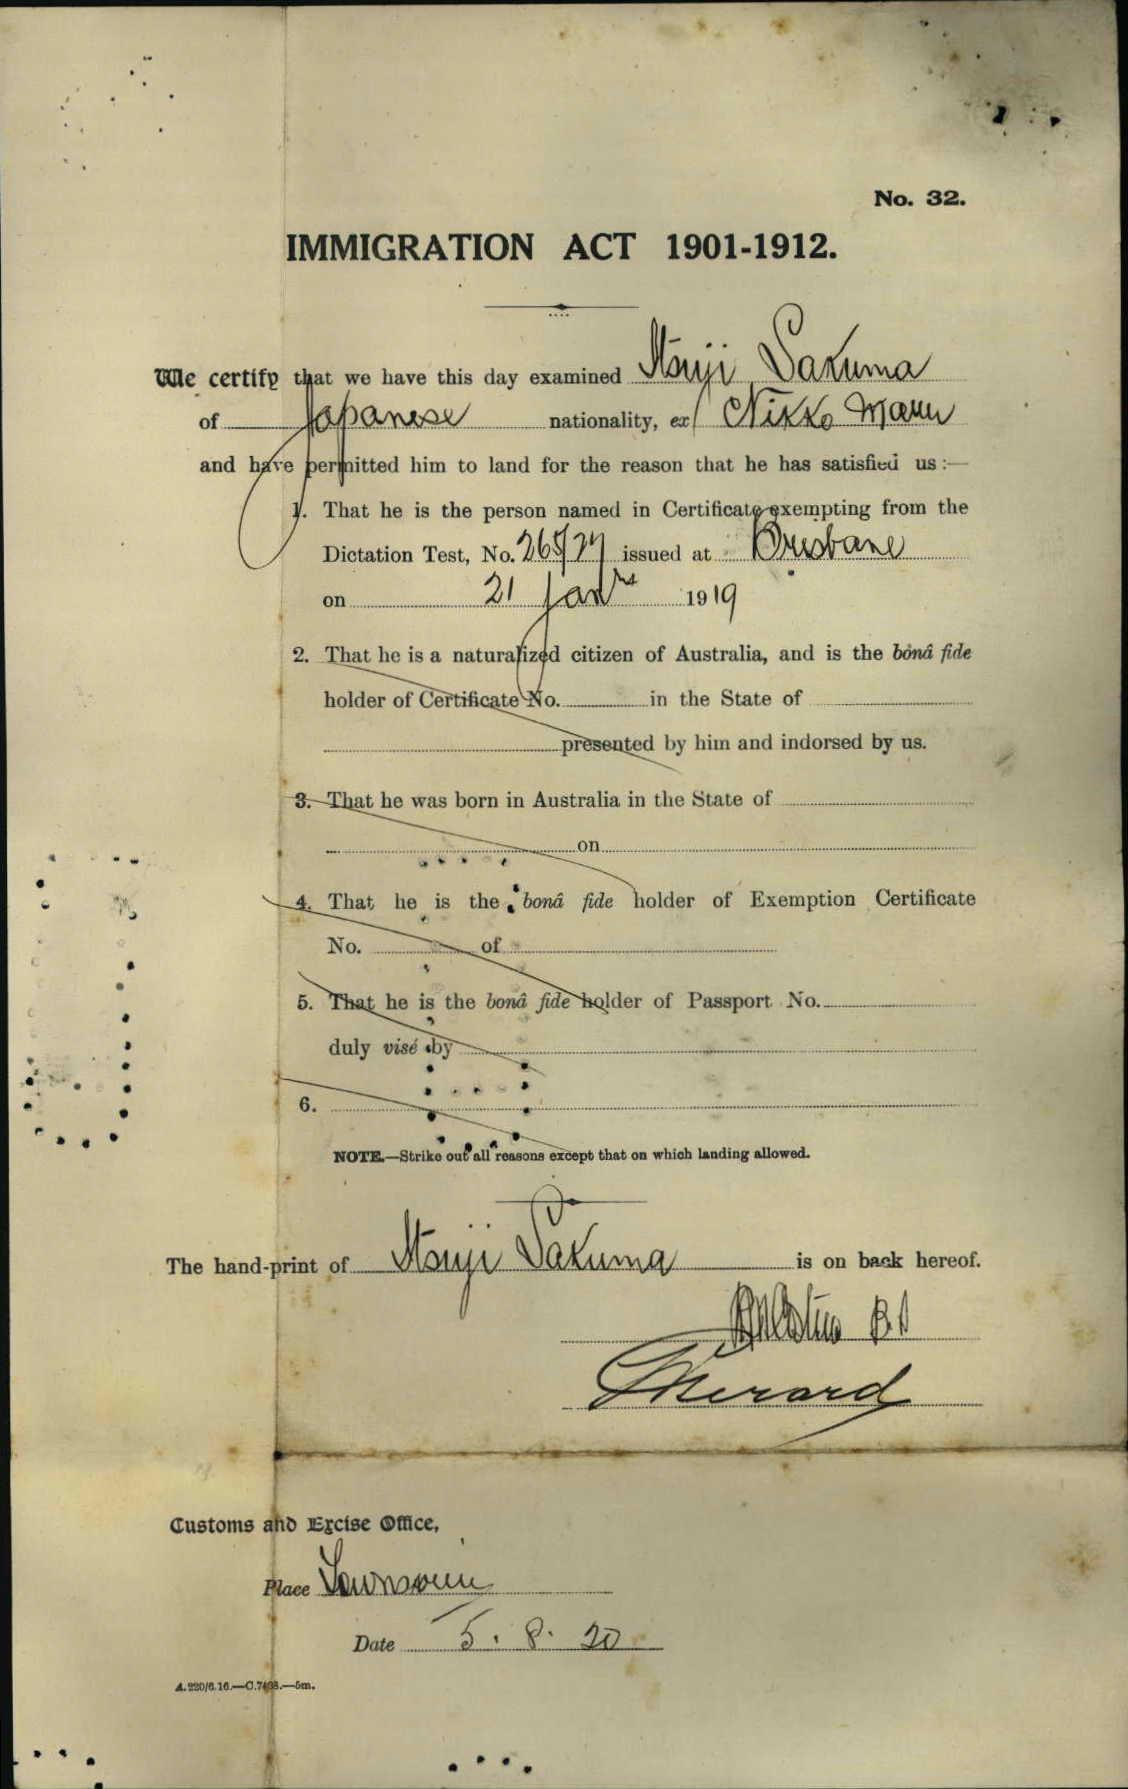 No. 32.
IMMIGRATION ACT 1901-1912.
We certify that we have this day examined Itsuji Sakuma
of Japanese nationality, ex Nikko Maru
and have permitted him to land for the reason that he has satisfied us:—
1. That he is the person named in Certificate exempting from the
Dictation Test, No. 265/77 issued at Brisbane
on 21 Jany 1919
2. That he is a naturalized citizen of Australia, and is the bonâ fide
holder of Certificate No. in the State of
presented by him and indorsed by us.
3. That he was born in Australia in the State of
on
4. That he is the bonâ fide holder of Exemption Certificate
No. of
5. That he is the bonâ fide holder of Passport No.
duly visé by
6.
NOTE.—Strike out all reasons except that on which landing allowed.
The hand-print of Itsuji Sakuma is on back hereof.
Customs and Excise Office,
Place Townsville
Date 5. 8. 20
A.220/6.16.—C.7498.—5m.